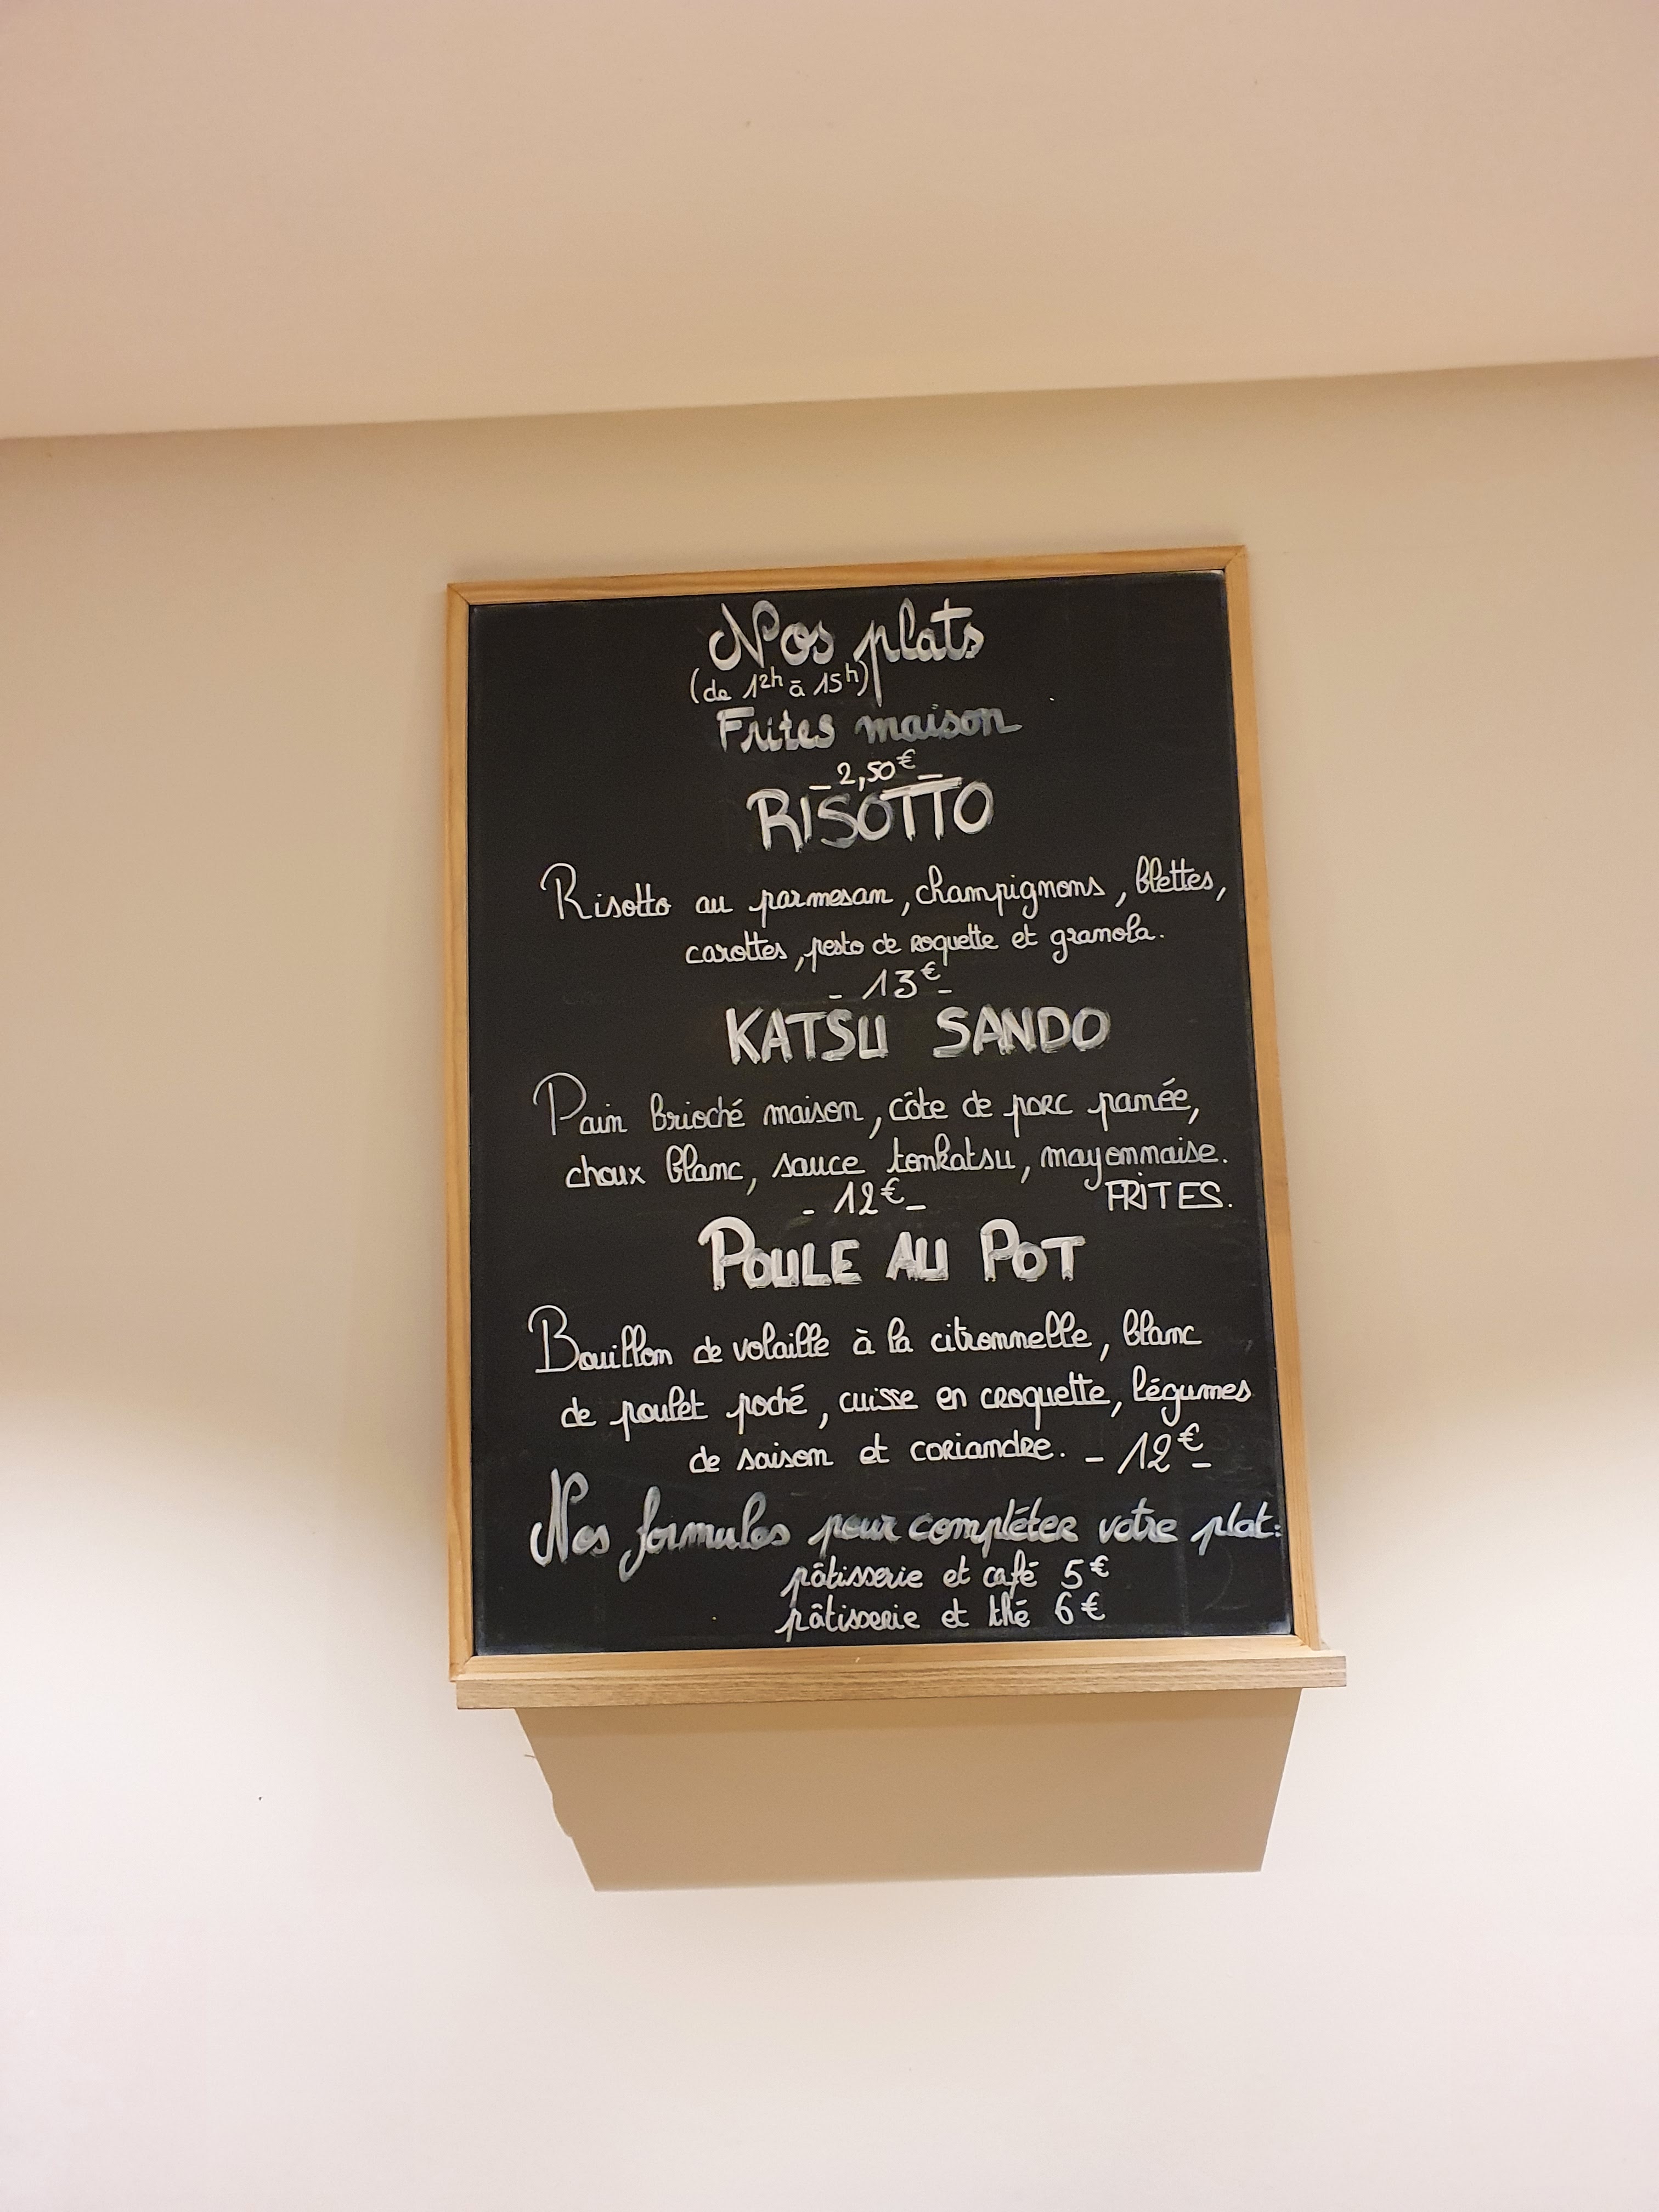 Nos plats
(de 12h à 15h)
Frites maison
- 2,50€ -
RISOTTO
Risotto au parmesan, champignons, blettes,
carottes, pesto de roquette et granola.
- 13€ -
KATSU SANDO
Pain brioché maison, côte de porc panée,
choux blanc, sauce tonkatsu, mayonnaise.
- 12€ - FRITES.
POULE AU POT
Bouillon de volaille à la citronnelle, blanc
de poulet poché, cuisse en croquette, légumes
de saison et coriandre. - 12€ -
Nos formules pour compléter votre plat:
pâtisserie et café 5€
pâtisserie et thé 6€